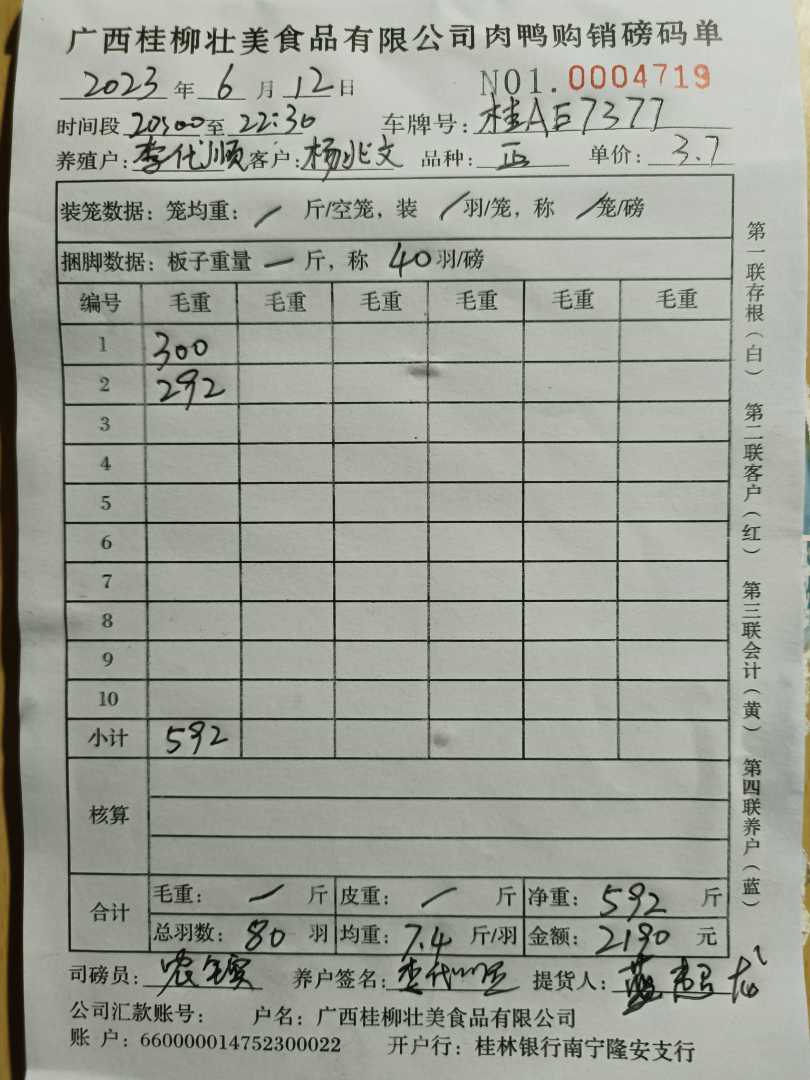 广西桂柳壮美食品有限公司肉鸭购销磅码单
2023 年 6 月 12 日 NO1.0004719
时间段 20:00 至 22:30 车牌号: 桂AE7377
养殖户: 李代顺 客户: 杨兆文 品种: 正 单价: 3.7
装笼数据: 笼均重: / 斤/空笼, 装 / 羽/笼, 称 / 笼/磅
捆脚数据: 板子重量 一 斤, 称 40 羽/磅
编号 毛重 毛重 毛重 毛重 毛重 毛重
1 300
2 292
3
4
5
6
7
8
9
10
小计 592
核算
合计 毛重: / 斤 皮重: / 斤 净重: 592 斤
总羽数: 80 羽 均重: 7.4 斤/羽 金额: 2190 元
司磅员: 农 养户签名: 李代顺 提货人:
公司汇款账号: 户名: 广西桂柳壮美食品有限公司
账 户: 660000014752300022 开户行: 桂林银行南宁隆安支行
第一联存根(白) 第二联客户(红) 第三联会计(黄) 第四联养户(蓝)